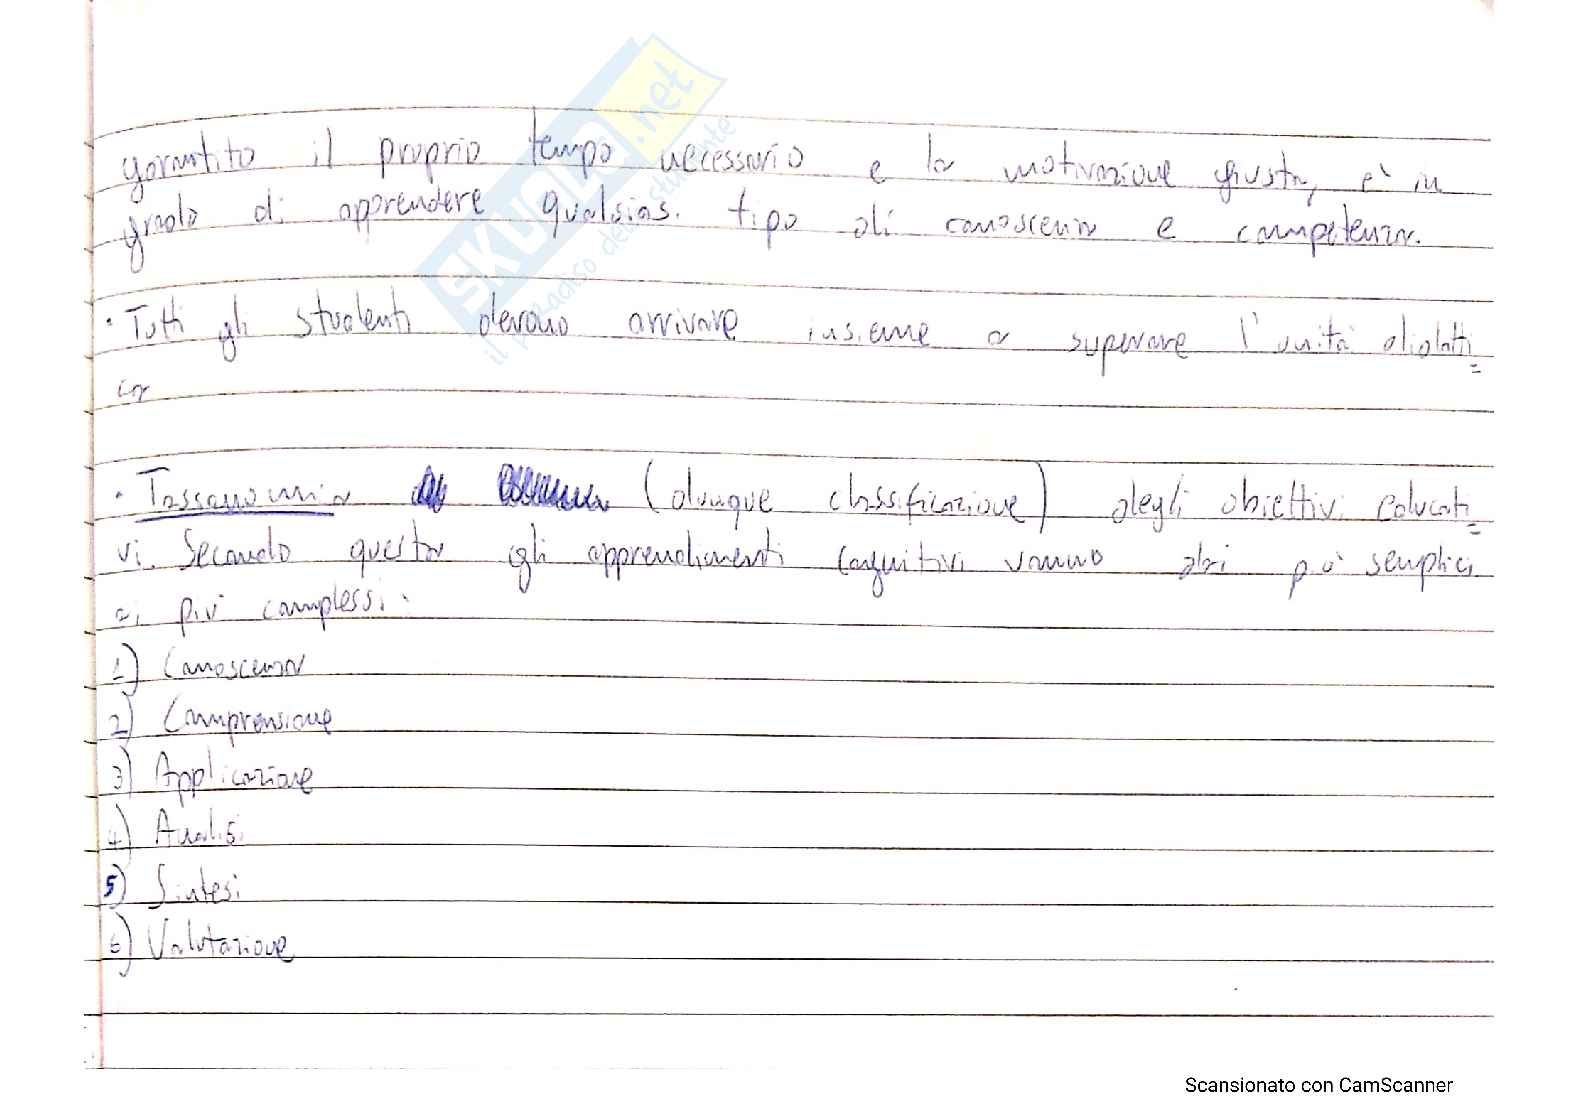 garantito il proprio tempo necessario e la motivazione giusta, è in
grado di apprendere qualsiasi tipo di conoscenza e competenza.
· Tutti gli studenti devono arrivare insieme a superare l'unità didatti=
ca
· Tassonomia (dunque classificazione) degli obiettivi educati=
vi. Secondo questa gli apprendimenti cognitivi vanno dai più semplici
ai più complessi:
1) Conoscenza
2) Comprensione
3) Applicazione
4) Analisi
5) Sintesi
6) Valutazione
SKUOLA.net
il paradiso dello studente
Scansionato con CamScanner